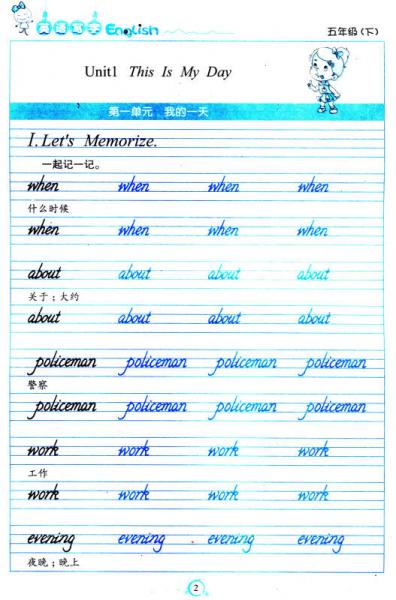 English
五年级(下)
Unit1 This Is My Day
第一单元 我的一天
I. Let's Memorize.
一起记一记。
when when when when
什么时候
when when when when
about about about about
关于；大约
about about about about
policeman policeman policeman policeman
警察
policeman policeman policeman policeman
work work work work
工作
work work work work
evening evening evening evening
夜晚；晚上
2